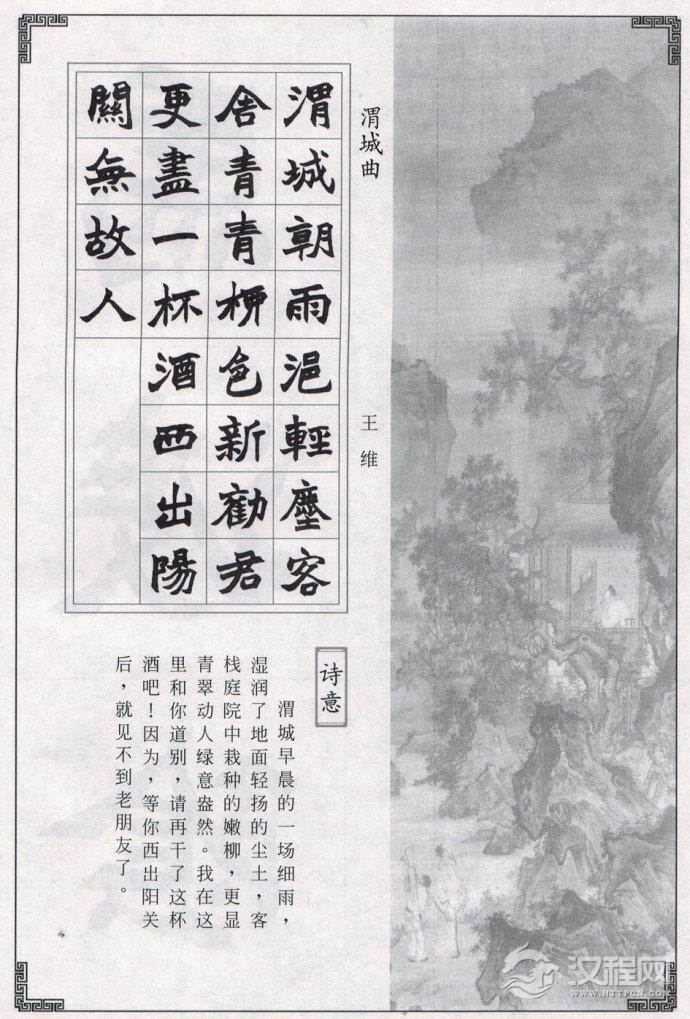 渭城曲
王维
渭城朝雨浥輕塵客
舍青青柳色新勸君
更盡一杯酒西出陽
關無故人
诗意
渭城早晨的一场细雨，
湿润了地面轻扬的尘土，客
栈庭院中栽种的嫩柳，更显
青翠动人绿意盎然。我在这
里和你道别，请再干了这杯
酒吧！因为，等你西出阳关
后，就见不到老朋友了。
汉程网
WWW.HTTPCN.COM